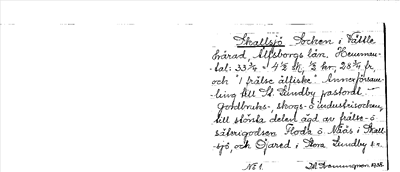 Skallsjö Socken i Vättle
härad, Älfsborgs län. Hemman-
tal: 33 3/4 4 1/2 sk, 1/2 kr, 28 3/4 fr,
och "1 frälse älfiske" Annexförsam-
ling till St. Lundby pastorat. —
Jordbruks-, skogs- o industrisocken,
till största delen ägd av frälse- o
säterigodsen Floda o Nääs i Skall-
sjö, och Öjared i Stora Lundby sn
No 1.